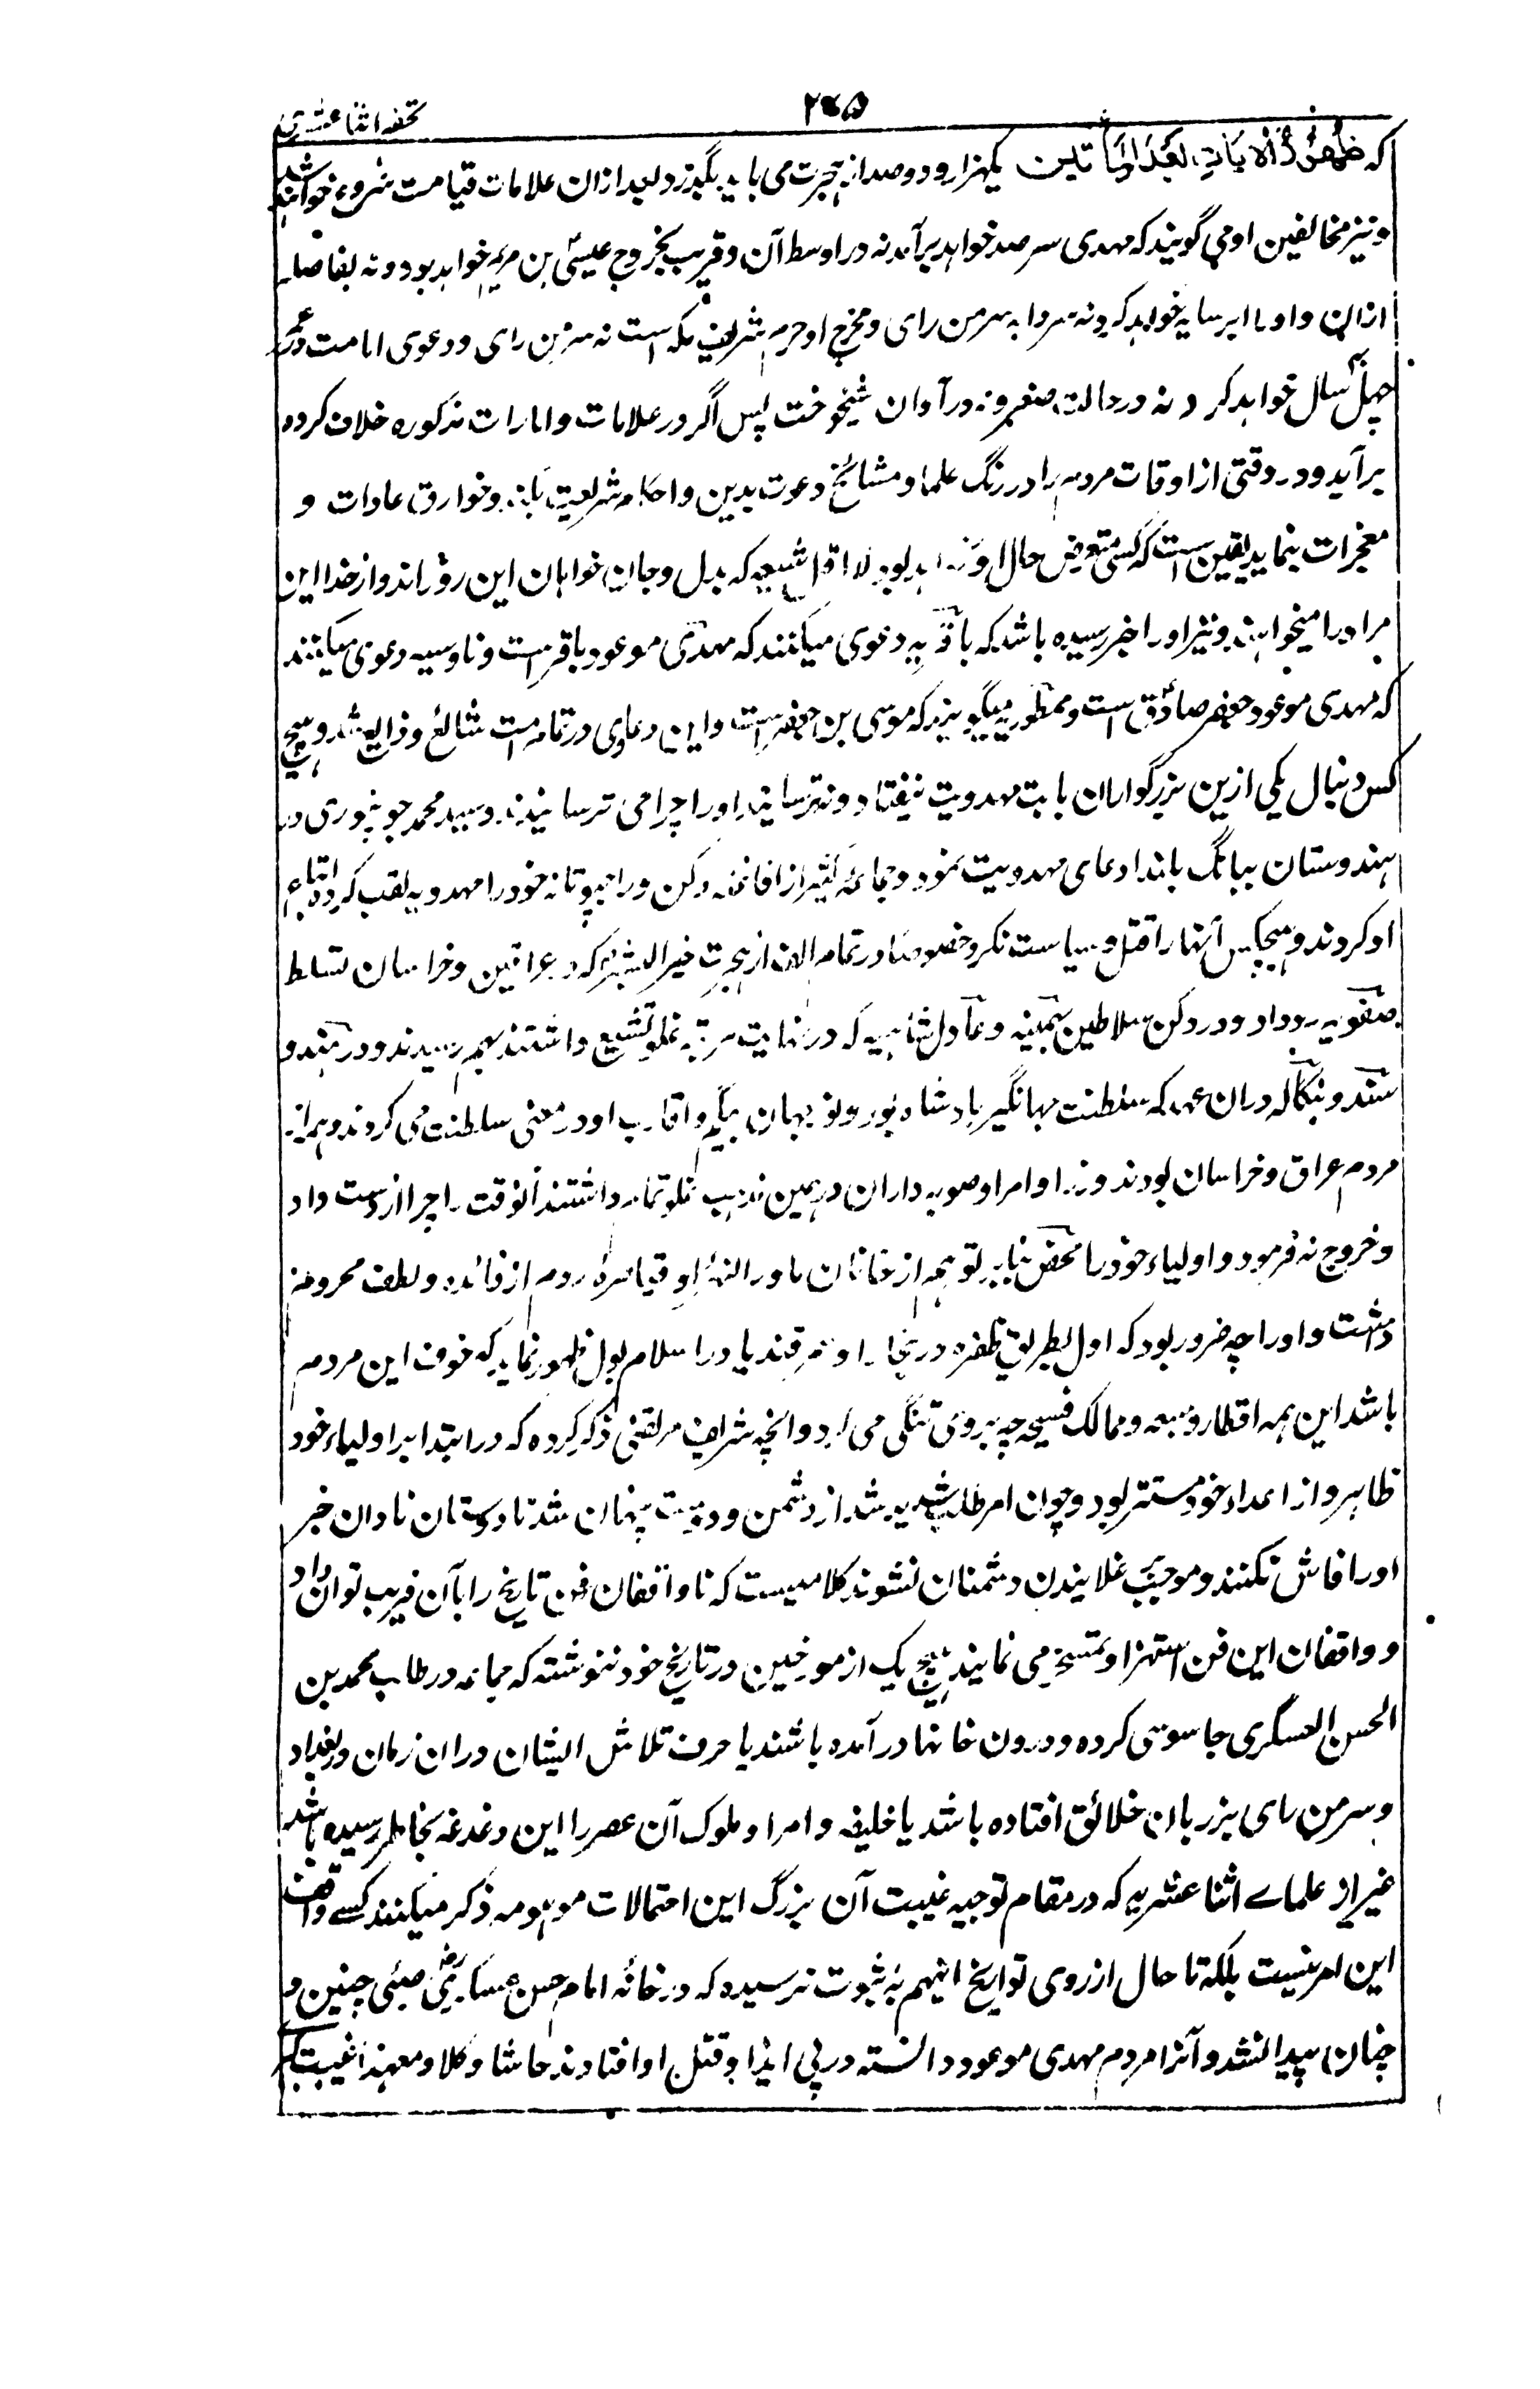 تحفه اثنا عشریه
۲۴۵
که ظهور الآیات بعد المأتین یکهزار و دو صد از هجرت می باید بگذرد بعد ازان علامات قیامت شروع خواهد شد
و نیز مخالفین او می گویند که مهدی سر صد خواهد برآمد نه در اوسط آن و قریب بخروج عیسی بن مریم خواهد بود و نه بفاصله
ازان و او را ابر سایه خواهد کرد نه سردابه سرمن رای و مخرج او حرم شریف مکه است نه سرمن رای و دعوی امامت در عمر
چهل سال خواهد کرد نه در حالت صغر و نه در آوان شیخوخت پس اگر در علامات و امارات مذکوره خلاف کرده
برآید و در وقتی از اوقات مردم را در رنگ علما و مشائخ دعوت بدین و احکام شریعت بکند و خوارق عادات و
معجزات بنماید یقین ست که کسی متعرض حال او نخواهد بود لا اقل شیعه که بدل و جان خواهان این روز اند و از خدا این
مراد را میخواهند و نیز او را خبر رسیده باشد که باقریه دعوی میکنند که مهدی موعود باقر ست و ناوسیه دعوی میکنند
که مهدی موعود جعفر صادق است و ممطوریه میگویند که موسی بن جعفر است و این دعاوی در تمام امت شائع و ذائع شد و هیچ
کس دنبال یکی ازین بزرگواران بابت مهدویت نیفتاد و نترسانید او را چرا می ترسانیدند و سید محمد جونپوری در
هندوستان ببانگ بلند ادعای مهدویت نمود و جماعه کثیر از افاغنه دکن و راجپوتانه خود را مهدویه لقب کرده اتباع
او کردند و هیچکس آنها را قتل و سیاست نکرد خصوصا در تمام الف از هجرت خیر البشر که در عراقین و خراسان تسلط
صفویه رو داد و در دکن سلاطین بهمنیه و عادل شاهیه که در نهایت مرتبه غلو تشیع داشتند بهم رسیدند و در هند و
سند و بنگاله دران عهد که سلطنت جهانگیر بادشاه بود و نور جهان بیگم و اقارب او در معنی سلطنت می کردند و همه از
مردم عراق و خراسان بودند وزرا و امرا و صوبه داران در همین مذهب غلو تمام داشتند آنوقت را چرا از دست داد
و خروج نه فرمود و اولیاء خود را محض بنا بر توهم از خانان ماوراء النهر و قیاصره روم از فائده و لطف محروم
داشت و او را چه ضرور بود که اول بطریق طفره در بخارا و سمرقند یا در اسلامبول ظهور نماید که خوف این مردم
باشد این همه اقطار وسیعه و ممالک فسیحه چه بر وی تنگی می کرد و آنچه شریف مرتضی ذکر کرده که در ابتدا بر اولیاء خود
ظاهر و از اعداء خود مستتر بود و چون امر طلب شدید شد از دشمن و دوست پنهان شد تا دوستان نادان خبر
او را فاش نکنند و موجب غلانیدن دشمنان نشوند کلامیست که ناواقفان فن تاریخ را بآن فریب توان داد
و واقفان این فن استهزا و تمسخر می نمایند هیچ یک از مورخین در تاریخ خود ننوشته که جماعه در طلب محمد بن
الحسن العسکری جاسوسی کرده و درون خانها در آمده باشند یا حرف تلاش ایشان دران زمان در بغداد
و سرمن رای بر زبان خلائق افتاده باشد یا خلیفه و امرا و ملوک آن عصر را این دغدغه بخاطر رسیده باشد
غیر از علمای اثنا عشریه که در مقام توجیه غیبت آن بزرگ این احتمالات موهومه ذکر میکنند کسی واقف
این امر نیست بلکه تا حال از روی تواریخ اینهم به ثبوت نرسیده که در خانه امام حسن عسکری رض صبئی چنین و
چنان پیدا شد و آنرا مردم مهدی موعود دانسته در پی ایذا و قتل او افتادند حاشا و کلا و معهذا غیبت